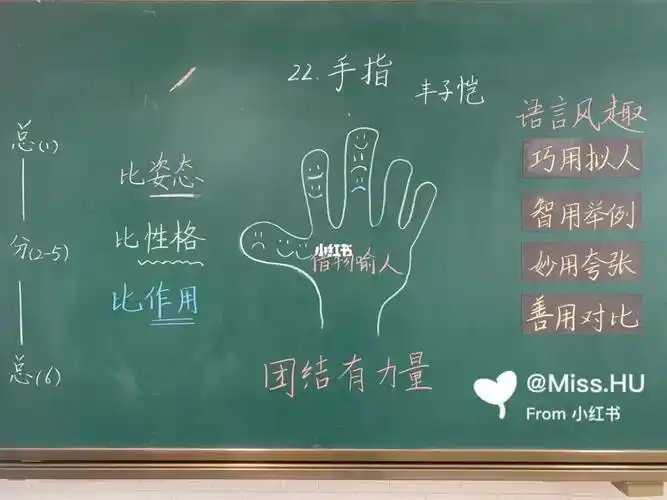 22.手指
丰子恺
总(1)
分(2-5)
总(6)
比姿态
比性格
比作用
小红书
借物喻人
团结有力量
语言风趣
巧用拟人
智用举例
妙用夸张
善用对比
@Miss.HU
From 小红书